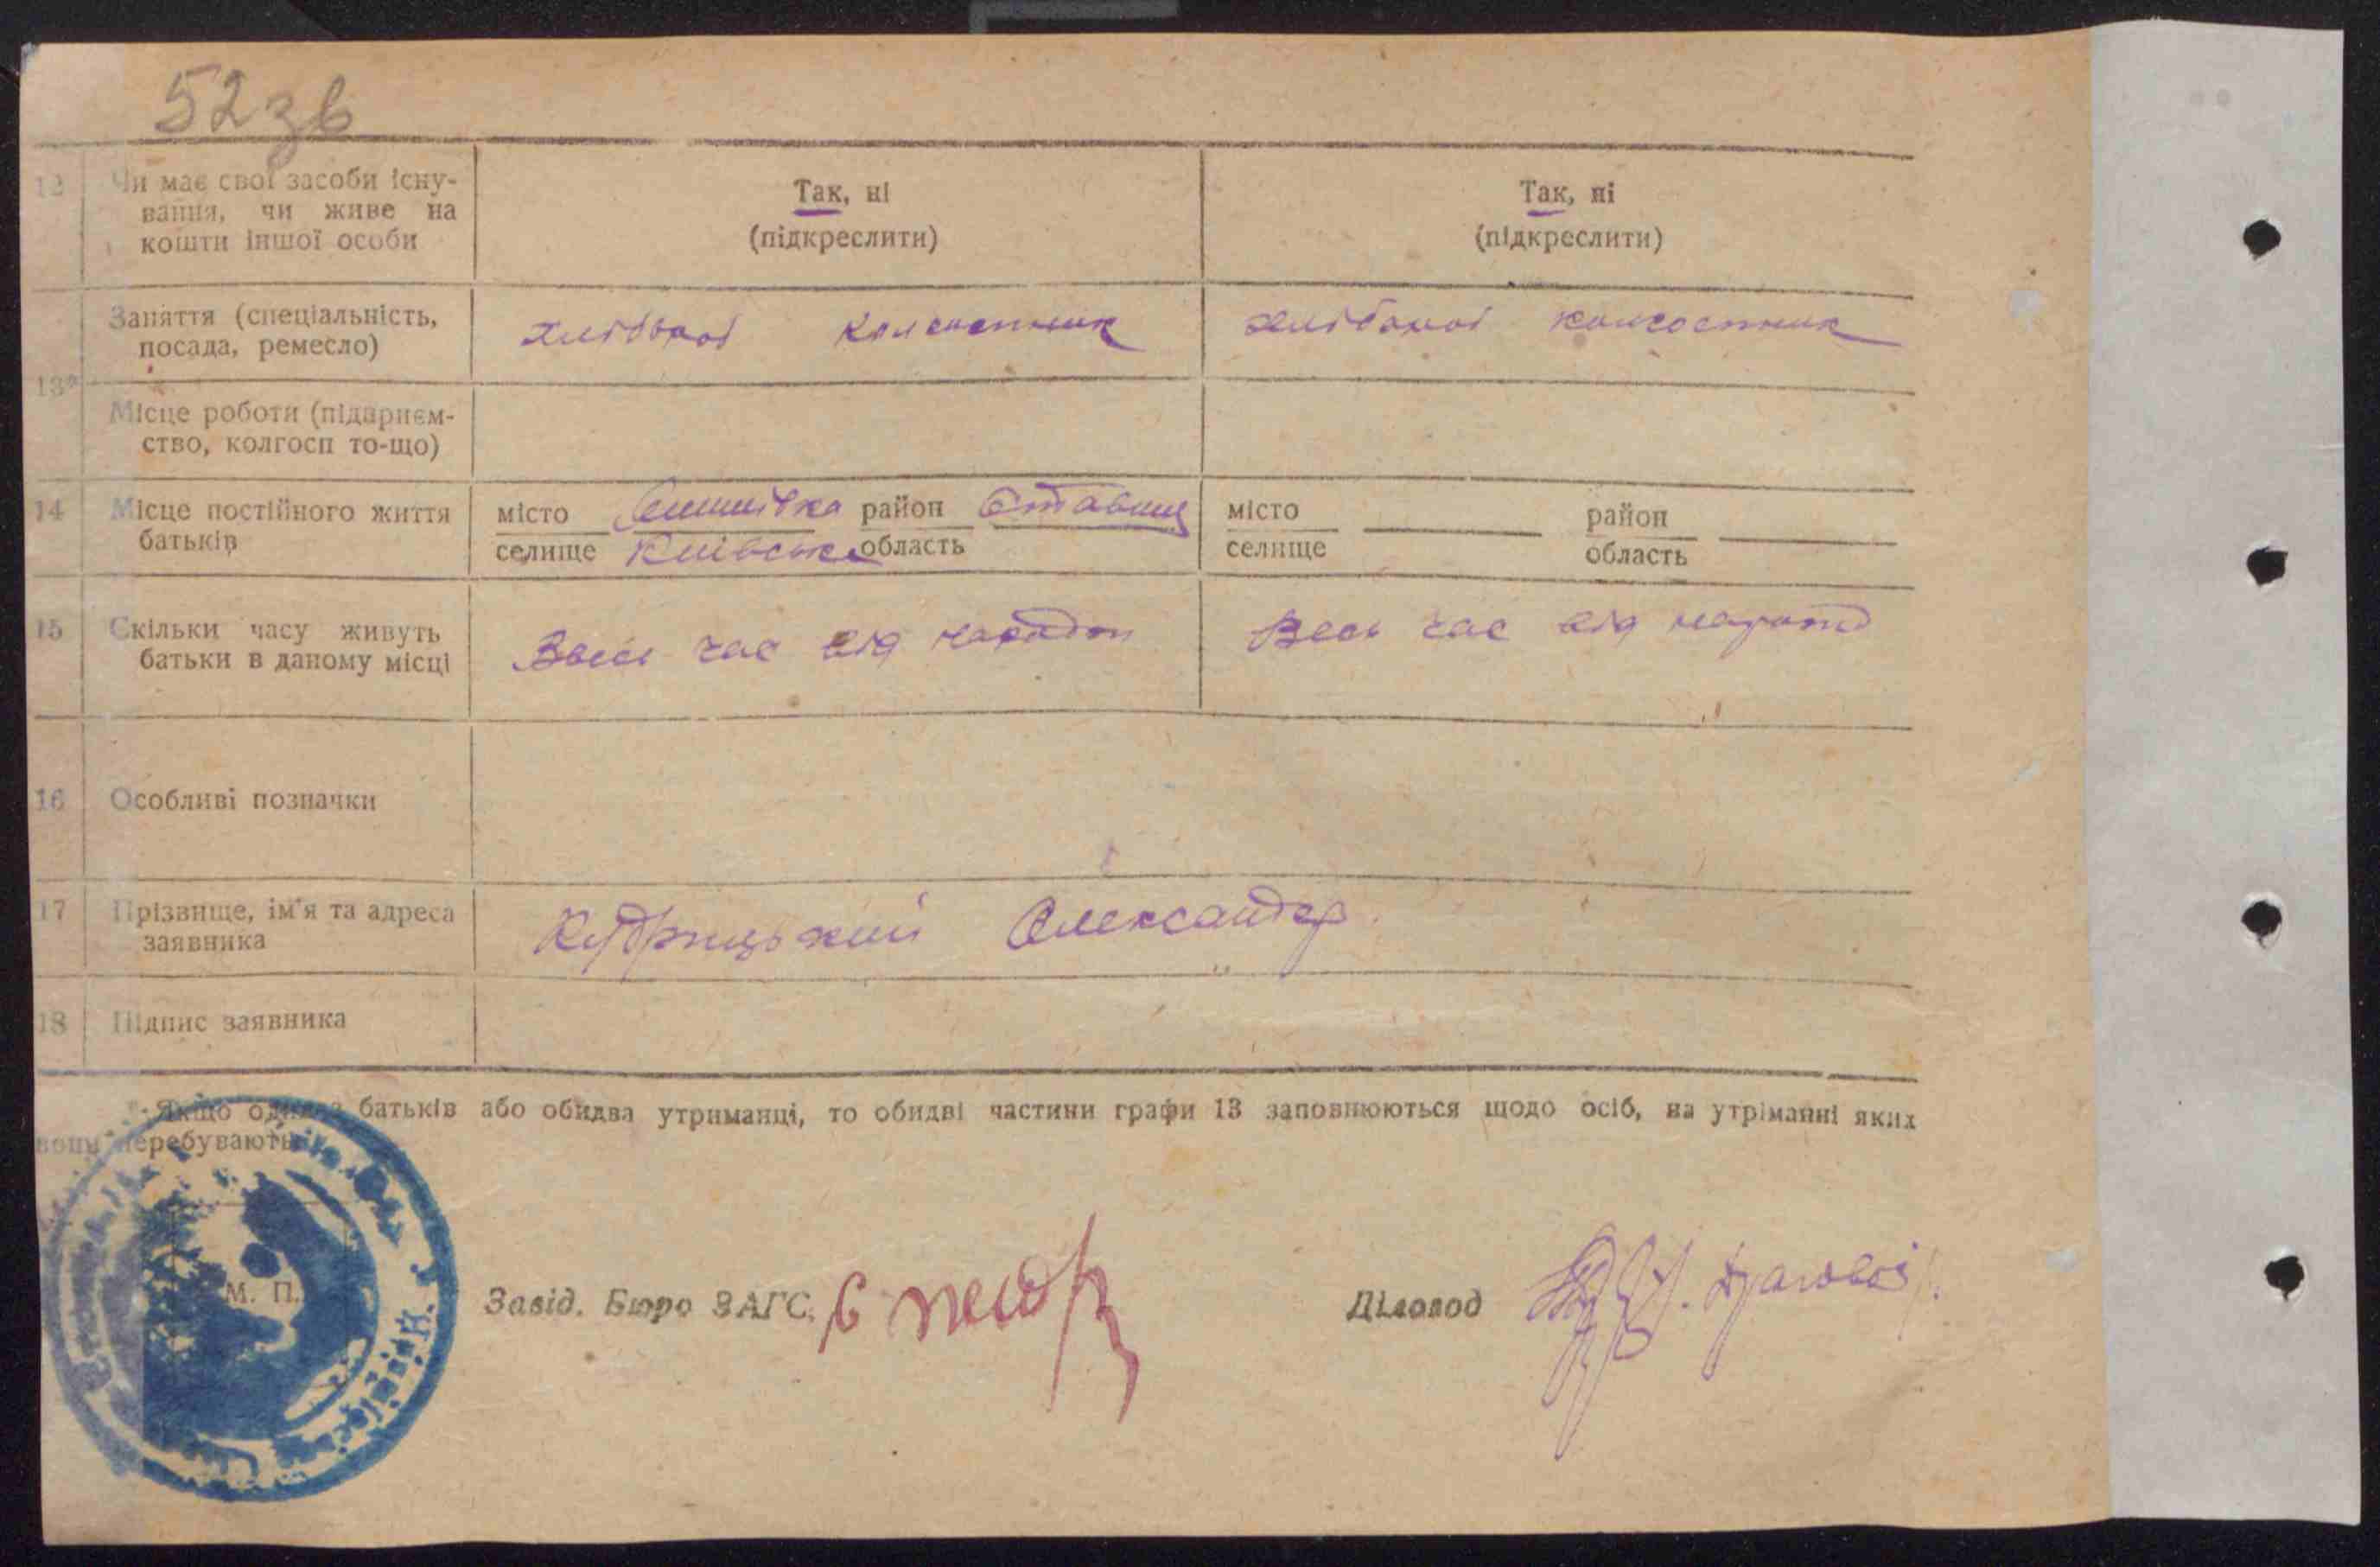 52зв
12 Чи має свої засоби існу-
вання, чи живе на
кошти іншої особи
Так, ні
(підкреслити)
Так, ні
(підкреслити)
Заняття (спеціальність,
посада, ремесло)
хлібороб колгоспник
хлібороб колгоспник
13*
Місце роботи (підприєм-
ство, колгосп то-що)
14 Місце постійного життя
батьків
місто район Ставищ
селище Київська область
місто район
селище область
15 Скільки часу живуть
батьки в даному місці
Ввесь час від народж
Весь час від народ
16 Особливі позначки
17 Прізвище, ім'я та адреса
заявника
Кудрицький Олександер
18 Підпис заявника
Якщо один з батьків або обидва утриманці, то обидві частини графи 13 заповнюються щодо осіб, на утріманні яких
вони перебувають.
М. П.
Завід. Бюро ЗАГС
Діловод